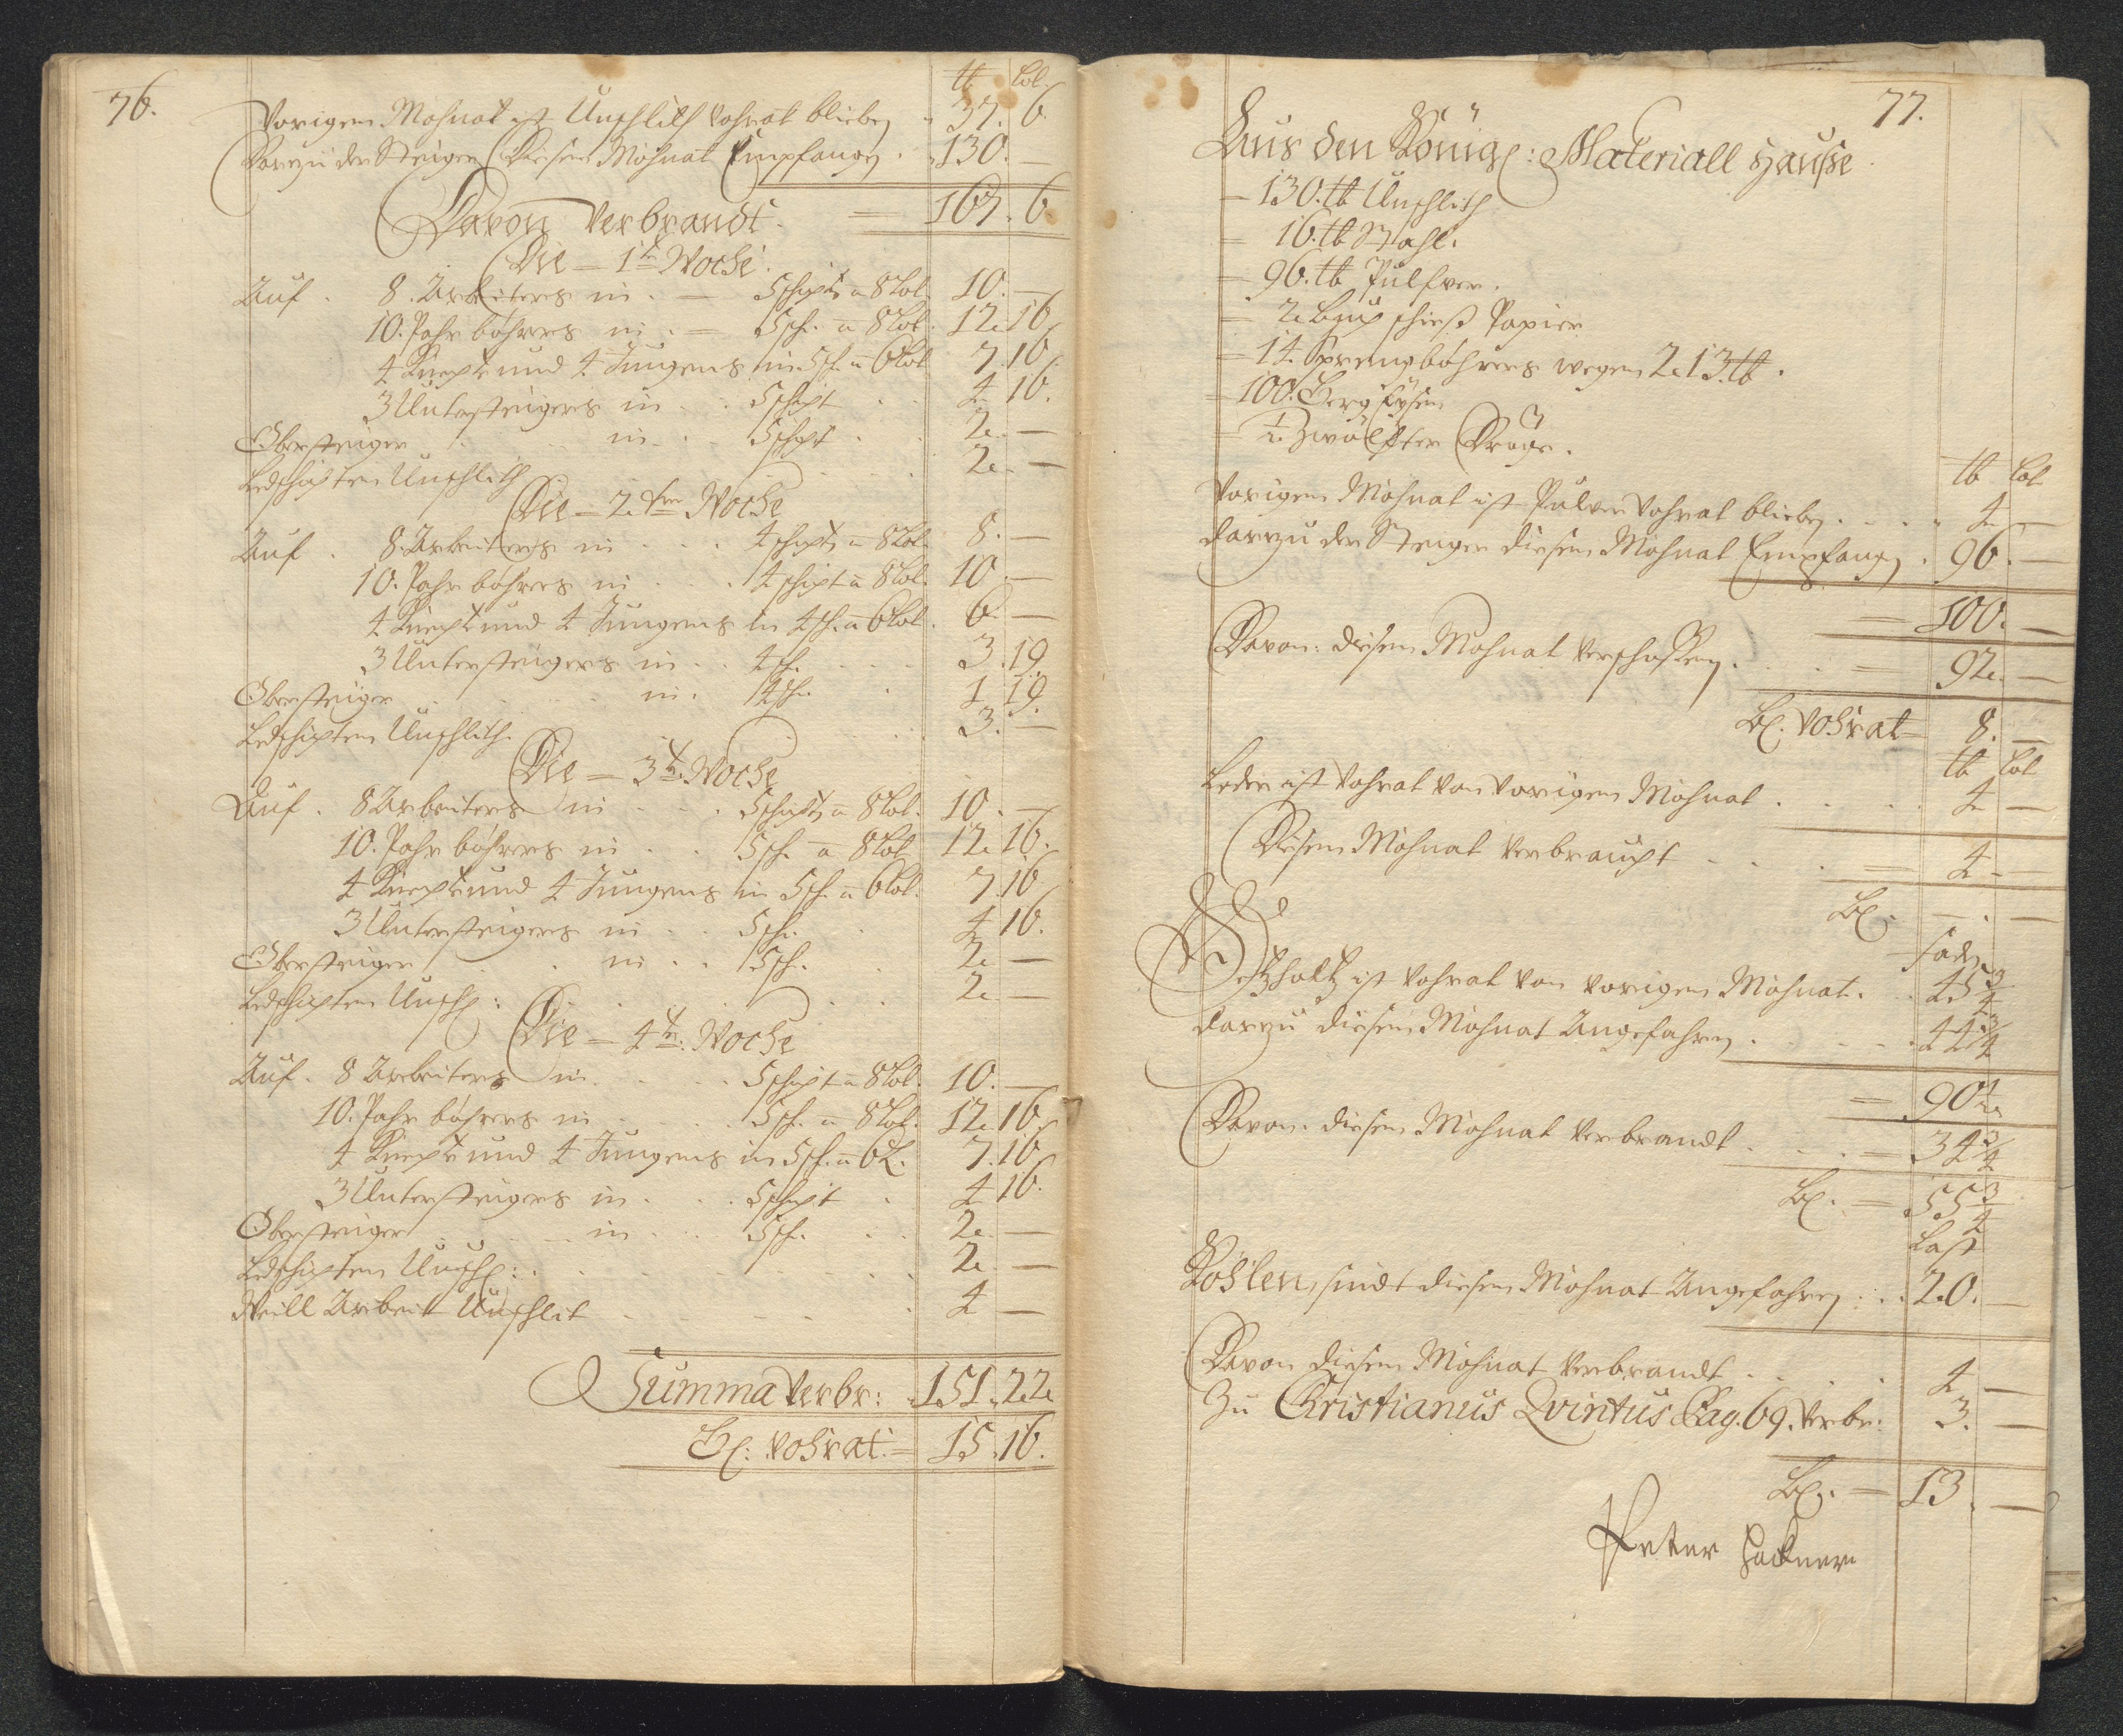 76.
℔ Lot.
Vorigem Mohnat ist Unschlith Vohrat blieben 37. 6.
Darzu der Steiger Diesem Mohnat Empfangen . 130. —
Davon Verbrandt. = 167. 6.
Die — 1te Woche.
Auf . 8. Arbeiters in . — 5 schicht a 8 Lot. 10. —
10. Pahr bohrers in . — 5 sch. a 8 Lot. 12. 16.
4 Knecht und 4 Jungens in 5 sch. a 6 Lot 7. 16.
3 Untersteigers in . . 5 schicht . . 4. 16.
Obersteiger . . . in . . 5 schicht . . 2. —
Ledschichten Unschlith . . . 2. —
Die — 2ten Woche
Auf . 8. Arbeiters in . . . 4 schicht a 8 Lot. 8. —
10. Pahr bohrers in . . . 4 schicht a 8 Lot. 10 —
4 Knecht und 4 Jungens in 4 sch. a 6 Lot. 6. —
3 Untersteigers in . . 4 sch. . . . 3. 19.
Obersteiger . . . . in . 4 sch. . 1. 19.
Ledschichten Unschlith. . . . 3. —
Die — 3te Woche
Auf . 8 Arbeiters in . . . 5 schicht a 8 Lot. 10. —
10. Pahr bohrers in . . 5 sch. a 8 Lot 12. 16.
4 Knecht und 4 Jungens in 5 sch. a 6 Lot. 7. 16
3 Untersteigers in . . 5 sch. . 4. 16.
Obersteiger . . in . . 5 sch. . 2. —
Ledschichten Unschl: . . . . 2. —
Die — 4te. Woche
Auf . 8 Arbeiters in . . . 5 schicht a 8 Lot. 10. —
10. Pahr bohrers in . . . 5 sch. a 8 Lot. 12. 16.
4 Knecht und 4 Jungens in 5 sch. a 6 L. 7. 16
3 Untersteigers in . . . 5 schicht . 4 16.
Obersteiger . . . in . . . 5 sch. . . 2. —
Ledschichten Unschl: . . . . 2. —
Weill Arbeit Unschlit . . . . 4 —
Summa Verbr: 151. 22
Bl: Vohrat. = 15. 16.
77.
Aus den Königl: Materiall Hausse
= 130. ℔ Unschlith
= 16. ℔ Stahl.
= 96. ℔ Pulfver.
= 2. Buch schieß Papier
= 14. Sprengbohrers wegen 213. ℔.
= 100. Berg Eysen
= ½ Zwölfter Tröge.
℔ Lot
Vorigem Mohnat ist Pulver Vohrat blieben . . . 4 —
darzu der Steiger diesem Mohnat Empfangen . 96. —
= 100. —
Davon: diesem Mohnat Verschossen . . . = 92. —
Bl. Vohrat = 8. —
℔ Lot
Leder ist Vohrat von Vorigem Mohnat . . . . 4 —
Diesem Mohnat Verbraucht . . . = 4 —
Bl. — . —
Faden
Setzholtz ist Vohrat von Vorigem Mohnat . . 45¾
darzu diesem Mohnat Angefahren . . . . 44¾
= 90½
Davon. diesem Mohnat Verbrandt . . . = 34¾
Bl. = 55¾
Last
Kohlen, sindt diesem Mohnat Angefahren . . . 20. —
Davon diesem Mohnat Verbrandt . . . . 4 —
Zu Christianus Qvintus Pag. 69. Verbr. 3. —
Bl. = 13. —
Peter